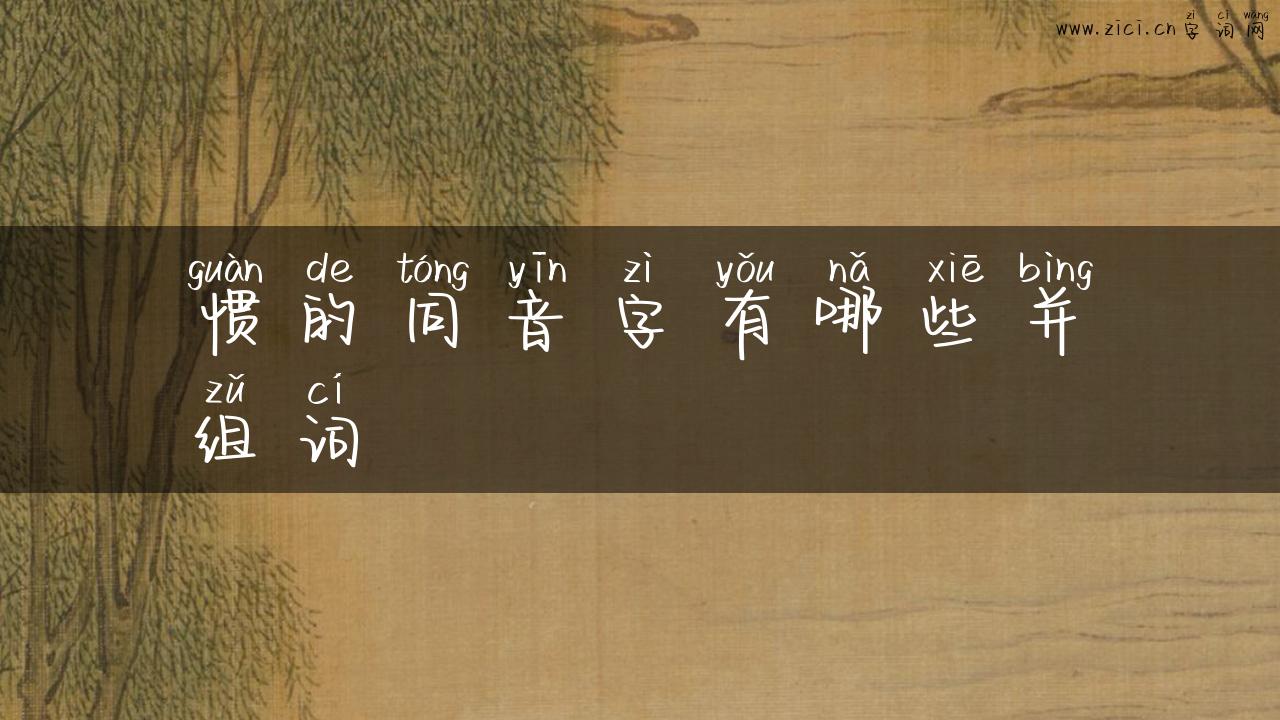 zì cí wǎng
www.zici.cn 字词网
guàn de tóng yīn zì yǒu nǎ xiē bìng
惯的同音字有哪些并
zǔ cí
组词